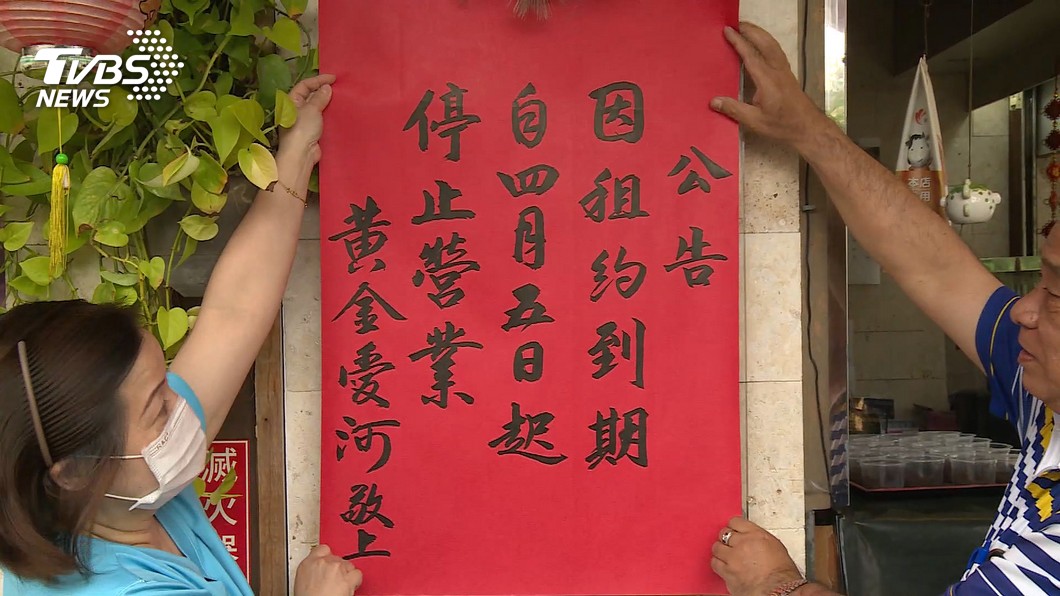 TVBS
NEWS
公告
因租約到期
自四月五日起
停止營業
黃金愛河敬上
滅火器
本店